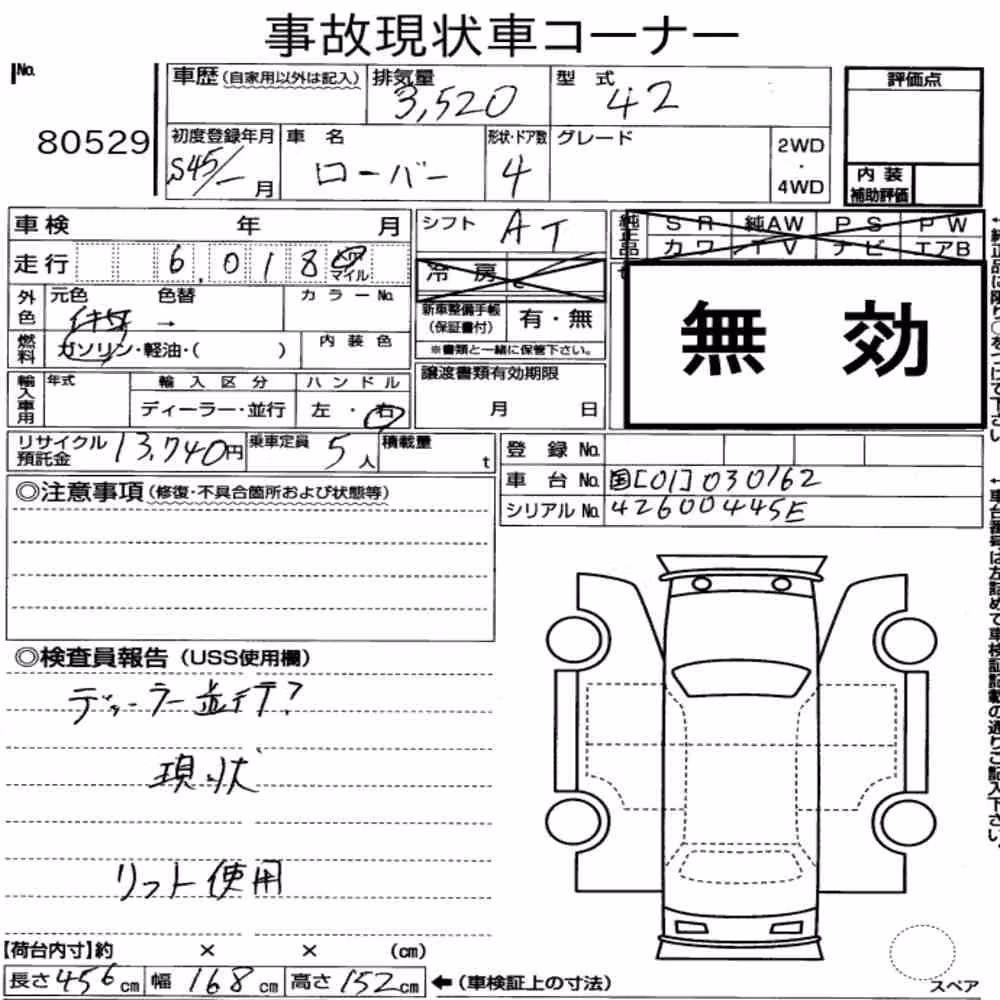 事故現状車コーナー
No. 80529
車歴 (自家用以外は記入) 排気量 3,520 型式 42
初度登録年月 S45/ー月 車名 ローバー 形状・ドア数 4 グレード 2WD ・ 4WD
評価点
内装補助評価
車検 年 月 シフト AT
純正品 SR 純AW PS PW
カワ TV ナビ エアB
走行 6,018 マイル
冷房
外色 元色 色替 → カラーNo.
新車整備手帳 (保証書付) 有・無
※書類と一緒に保管下さい。
燃料 ガソリン・軽油・( ) 内装色
無効
輸入車用 年式 輸入区分 ハンドル
ディーラー・並行 左・右
譲渡書類有効期限
月 日
リサイクル預託金 13,740円 乗車定員 5人 積載量 t
登録No.
車台No. 国[01]030162
シリアルNo. 42600445E
◎注意事項 (修復・不具合箇所および状態等)
◎検査員報告 (USS使用欄)
ディーラー並行?
現状
リフト使用
【荷台内寸】約 × × (cm)
長さ 456 cm 幅 168 cm 高さ 152 cm ←(車検証上の寸法)
スペア
←純正品に限り○をつけて下さい。
←車台番号は左詰めで車検証記載の通りご記入下さい。